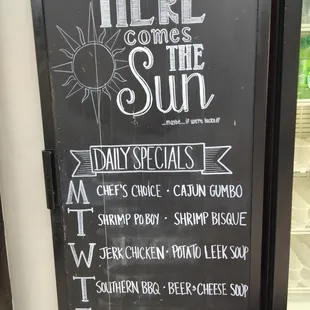 HERE
comes
THE
Sun
...maybe...if we're lucky!!
DAILY SPECIALS
M CHEF'S CHOICE · CAJUN GUMBO
T SHRIMP PO BOY · SHRIMP BISQUE
W JERK CHICKEN · POTATO LEEK SOUP
T SOUTHERN BBQ · BEER & CHEESE SOUP